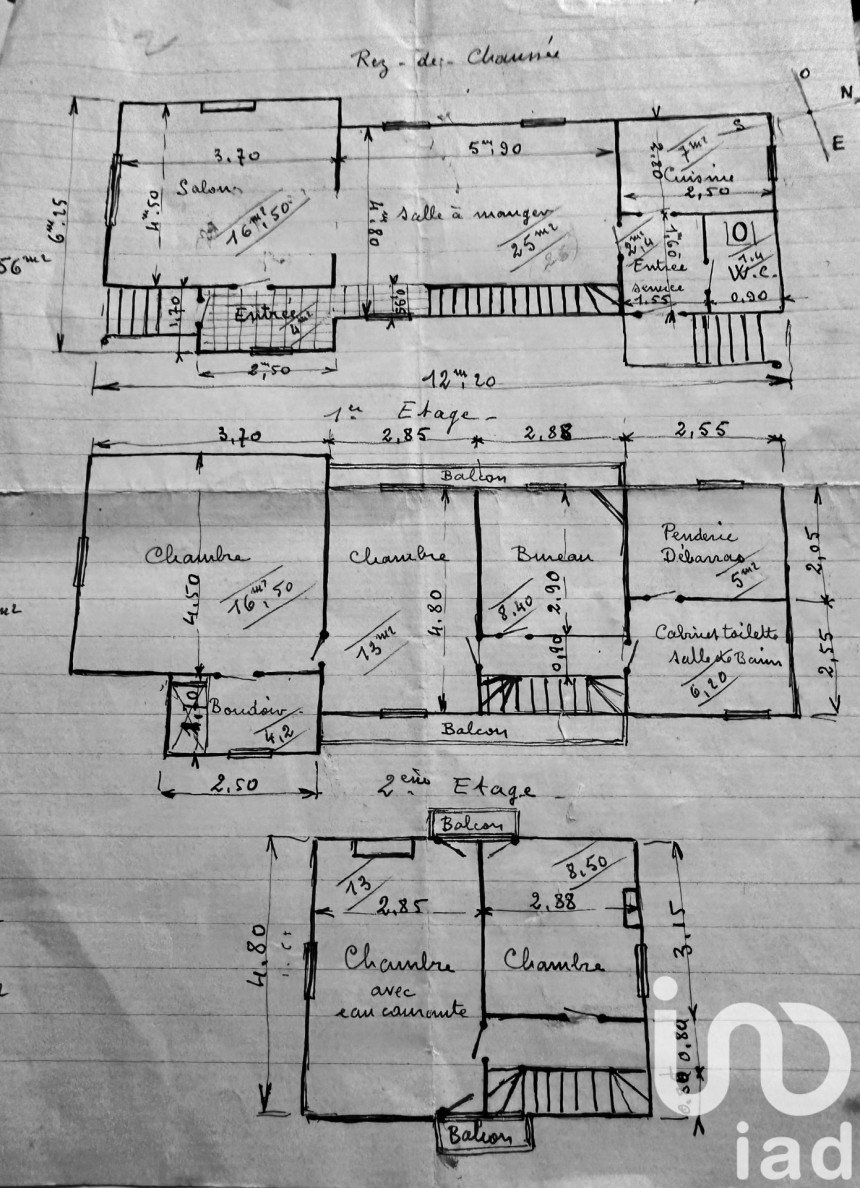 Rez-de-Chaussée
O
N
E
6m,25
3,70
Salon
4m50
16m²,50
5m,90
4m,80
Salle à manger
25m²
2,80
7m²
S
Cuisine
2,50
2m²,4
1,60
Entrée
service
1,55
1,4
W.C.
0,90
56m²
1,70
Entrée
4m²
560
2m,50
12m,20
1er Etage
3,70
2,85
2,88
2,55
Balcon
Chambre
4,50
16m²,50
Chambre
13m²
4.80
Bureau
8.40
2,90
0,90
Penderie
Débarras
5m²
2,05
Cabinet toilette
salle de Bain
6,20
2,55
m²
1,70
Boudoir
4,2
Balcon
2.50
2ème Etage
Balcon
13
8,50
2,85
2,88
4.80
3,15
Chambre
avec
eau courante
Chambre
0,80
Balcon
iad